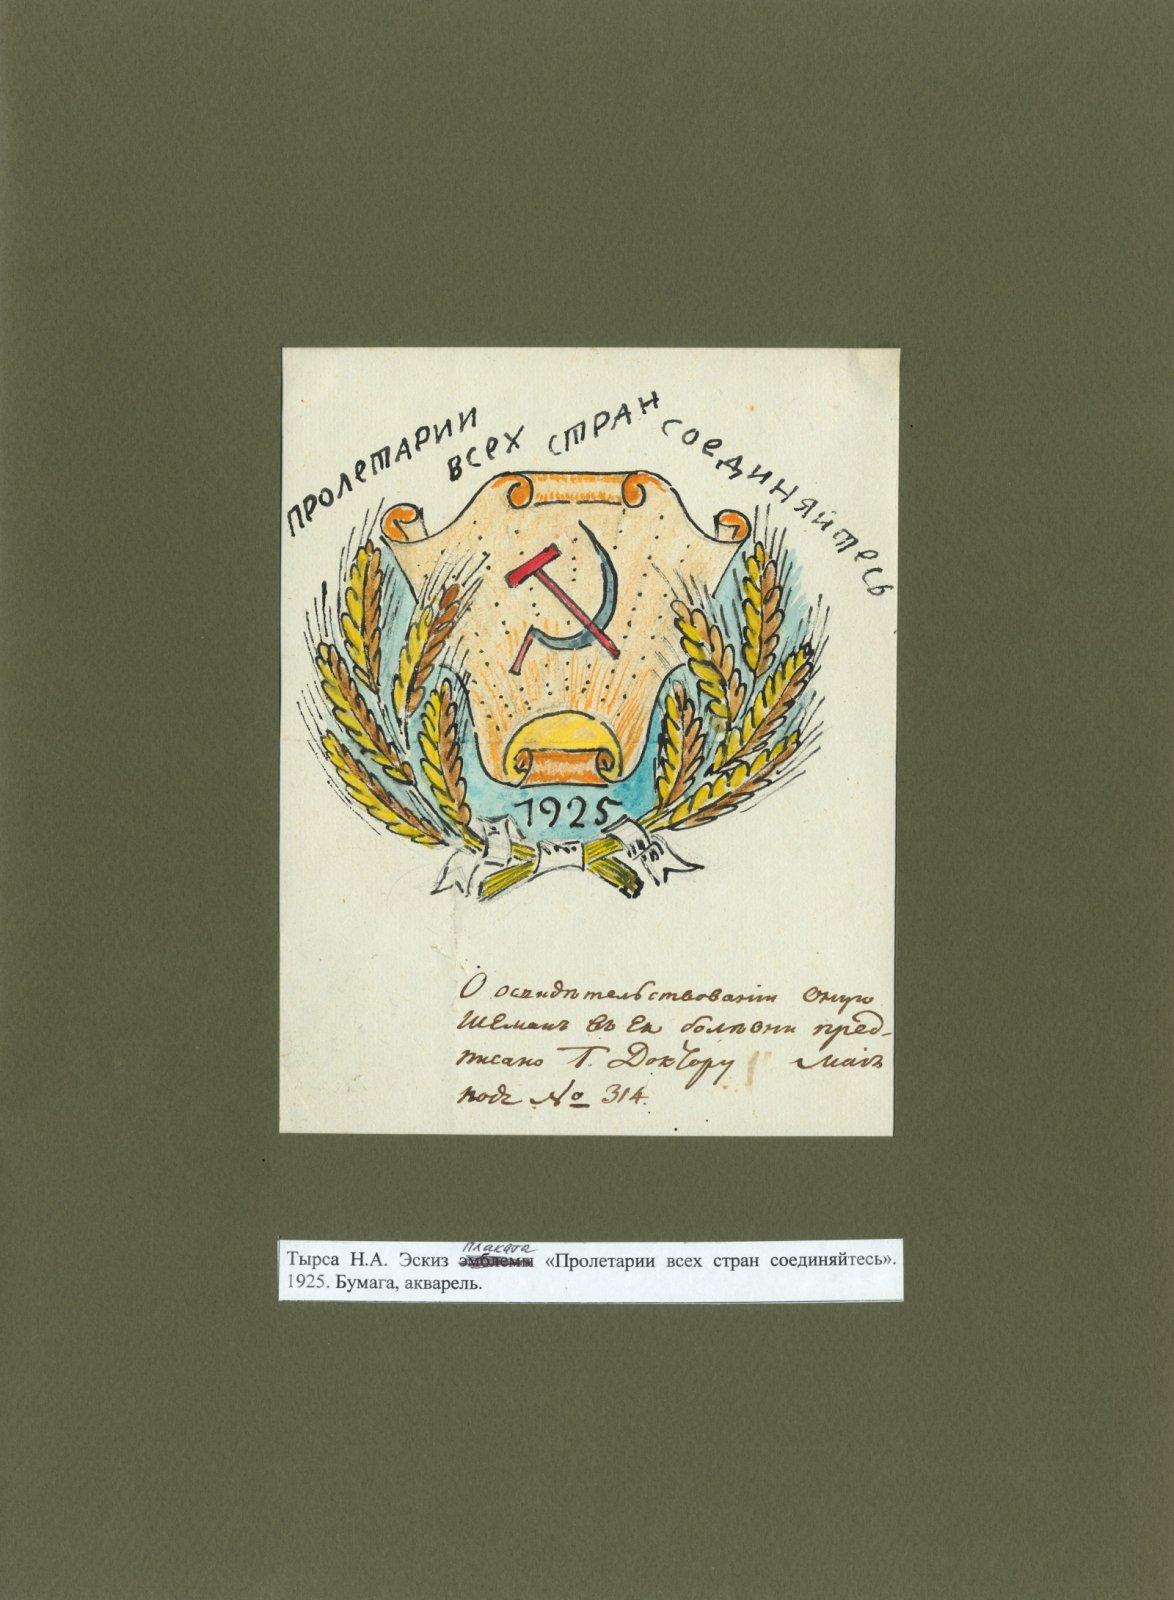 ПРОЛЕТАРИИ ВСЕХ СТРАН СОЕДИНЯЙТЕСЬ
1925
О освидѣтельствованіи оную
въ Ея болѣзни пред-
писано Г. Доктору
подъ № 314.
плаката
Тырса Н.А. Эскиз эмблемы «Пролетарии всех стран соединяйтесь».
1925. Бумага, акварель.